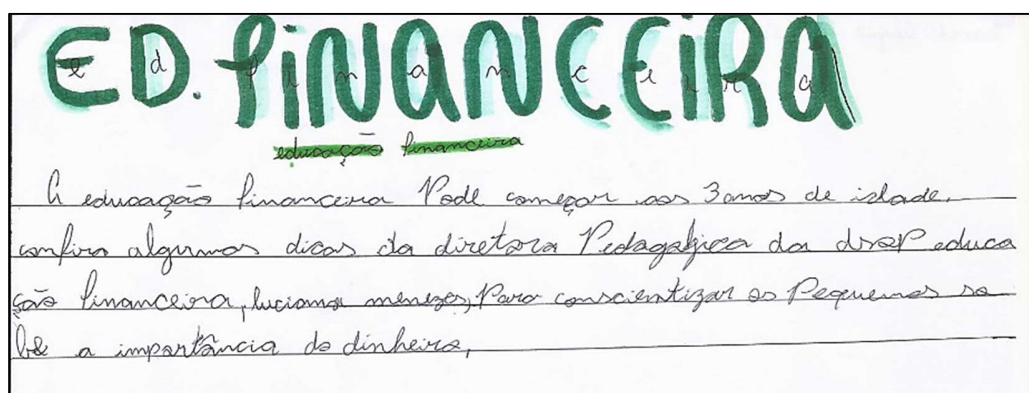 ED. FINANCEIRA
educação financeira
A educação financeira Pode começar aos 3 anos de idade.
confira algumas dicas da diretora Pedagógica da dsoP educa
ção financeira, luciana menezes, Para conscientizar os Pequenos so
bre a importância do dinheiro,